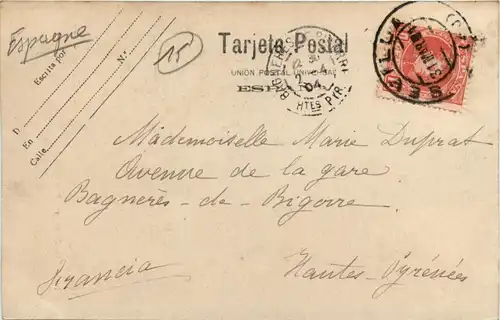 Espagne
15
Tarjeta Postal
UNION POSTAL UNIVERSAL
ESPAÑA
Escrita por
N.º
D
En
Calle
SEVILLA
31 MAR 04
BAGNERES DE BIGORRE
4
04
HTES PYR.
Mademoiselle Marie Duprat
Avenue de la gare
Bagnères-de-Bigorre
Francia
Hautes-Pyrénées